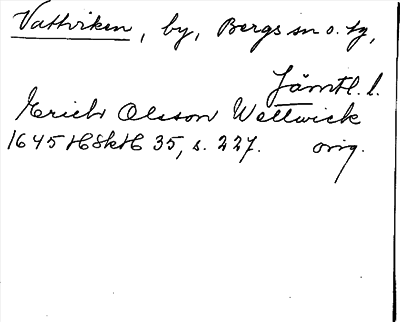 Vattviken, by, Bergs sn o. tg,
Jämtl. l.
Erich Olsson Wettwick
1645 HSkH 35, s. 227. orig.